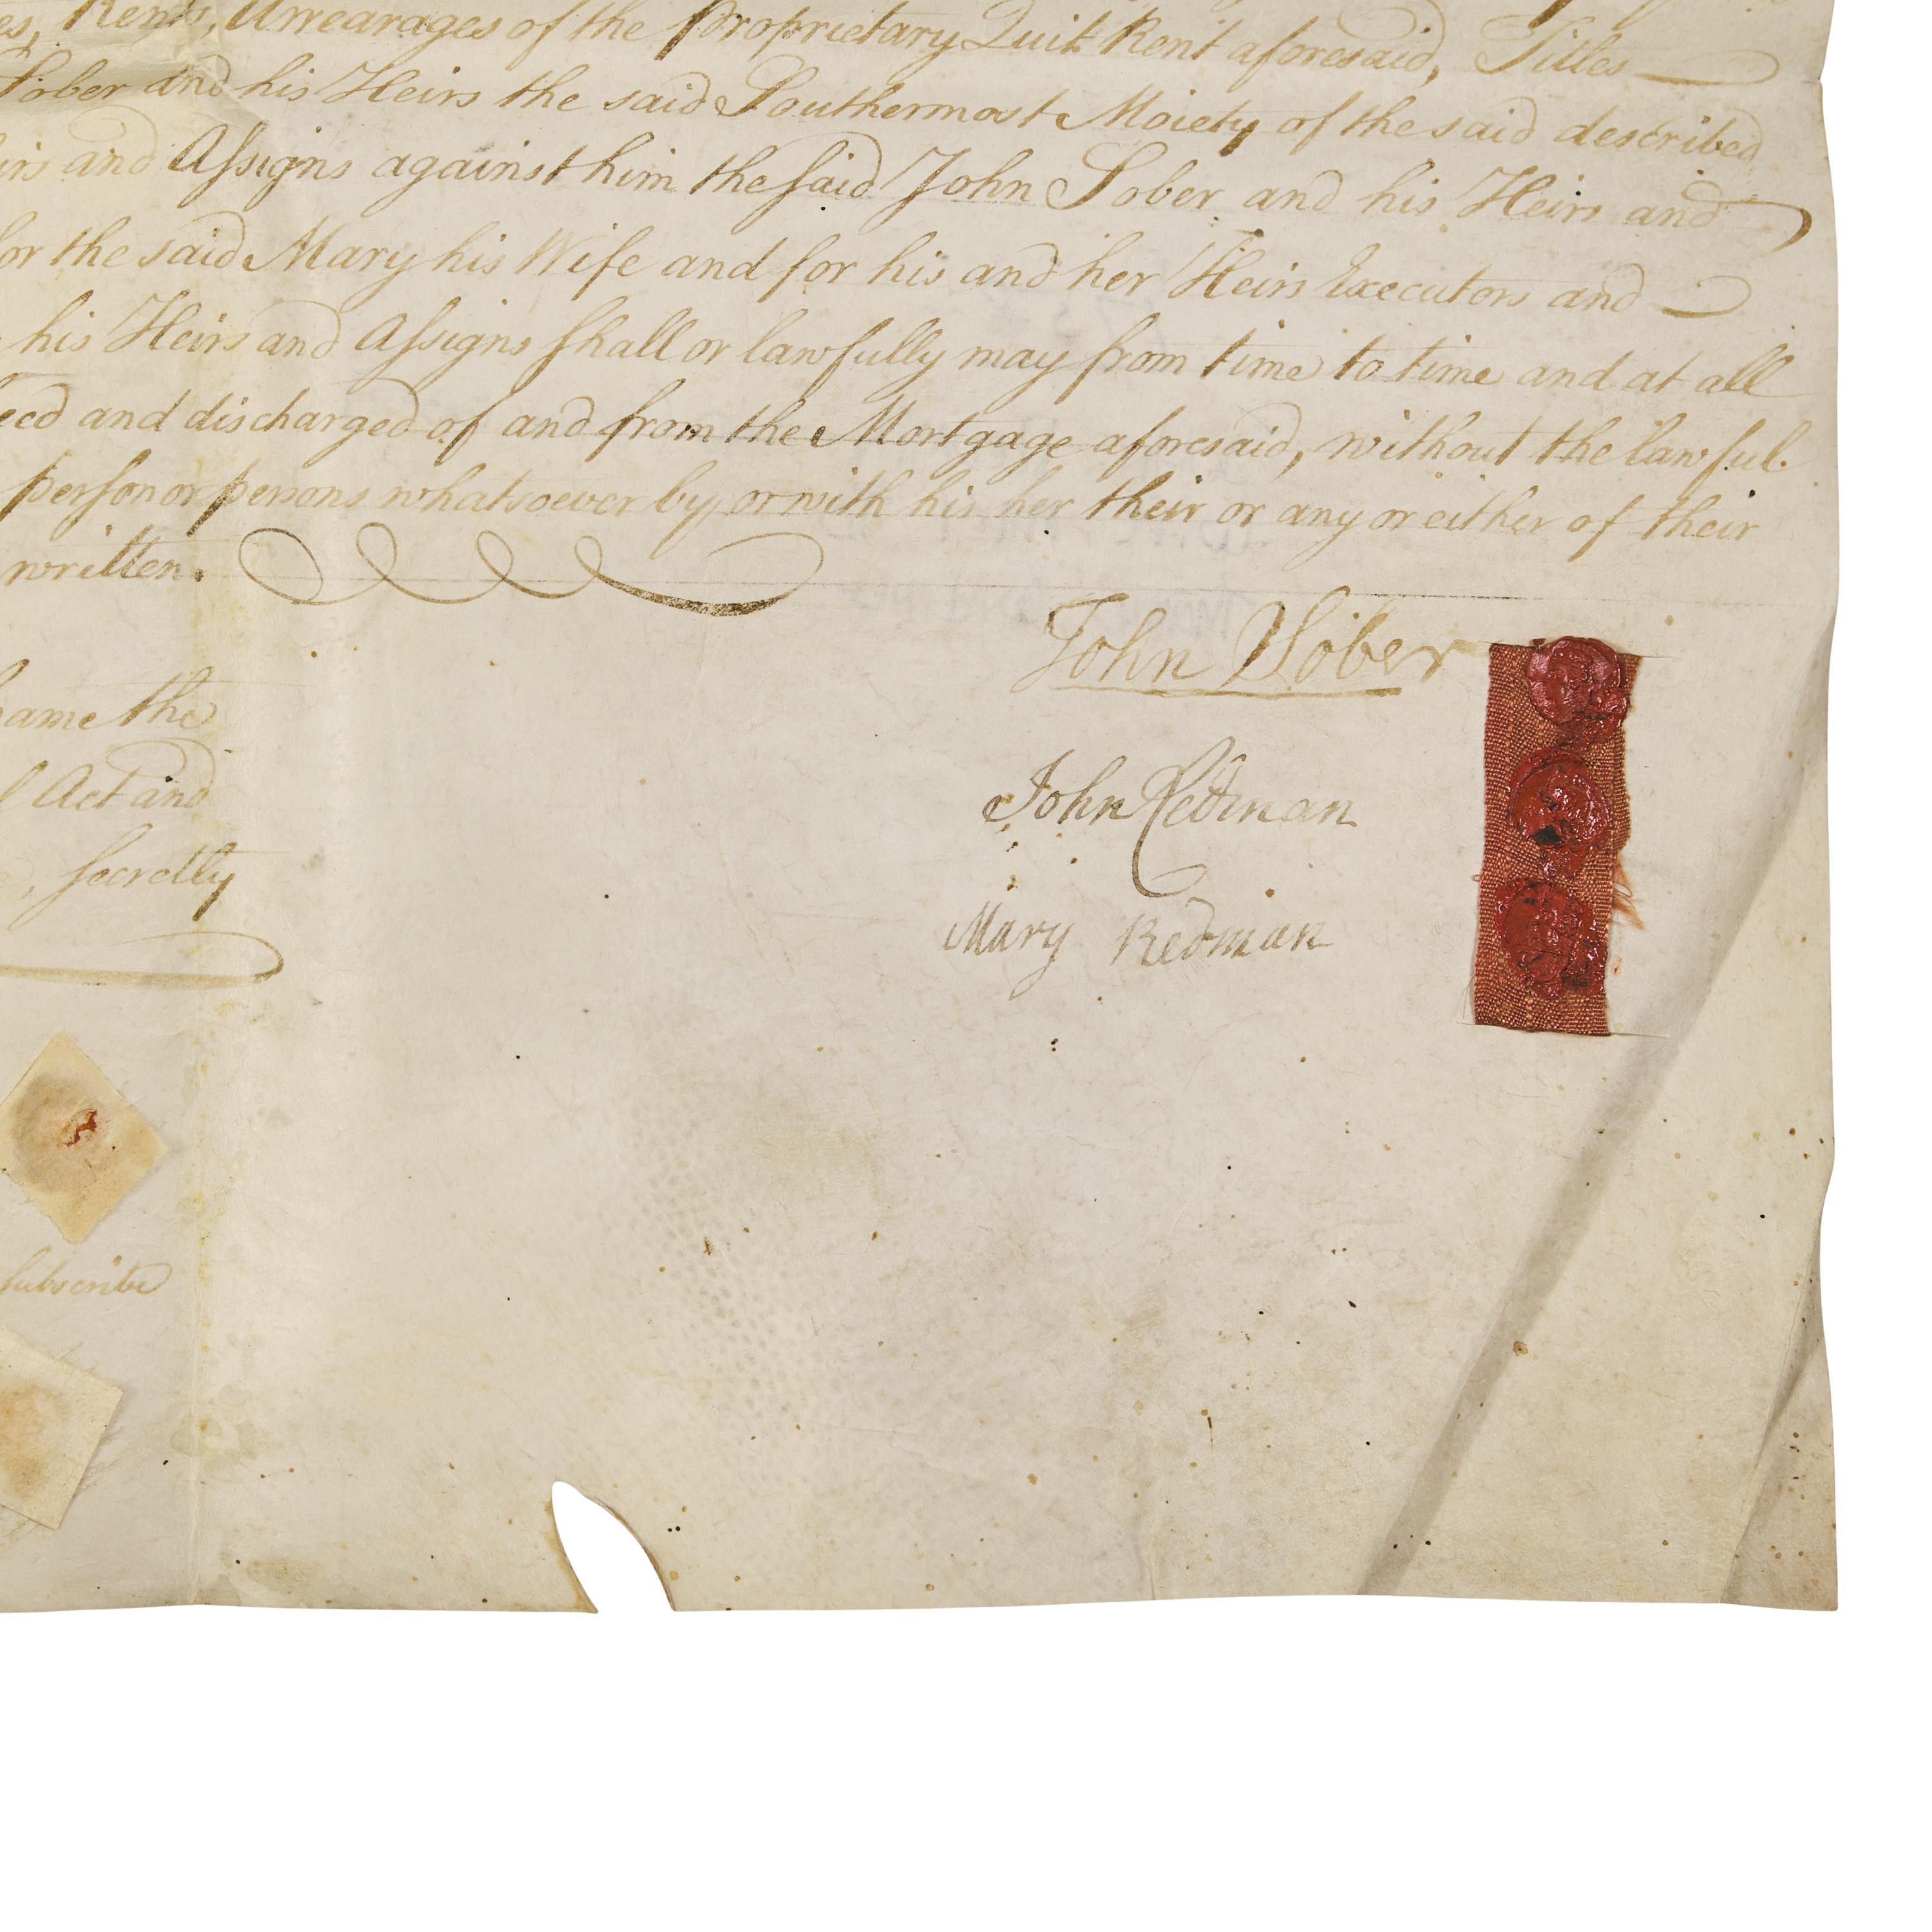 Rents, Arrearages of the Proprietary Quit Rent aforesaid, Titles
Sober and his Heirs the said Southermost Moiety of the said described
irs and Assigns against him the said John Sober and his Heirs and
for the said Mary his Wife and for his and her Heirs Executors and
his Heirs and Assigns shall or lawfully may from time to time and at all
eed and discharged of and from the Mortgage aforesaid, without the lawful
person or persons whatsoever by or with his her their or any or either of their
written.
John Sober
John Redman
Mary Redman
ame the
Act and
secretly
subscribe